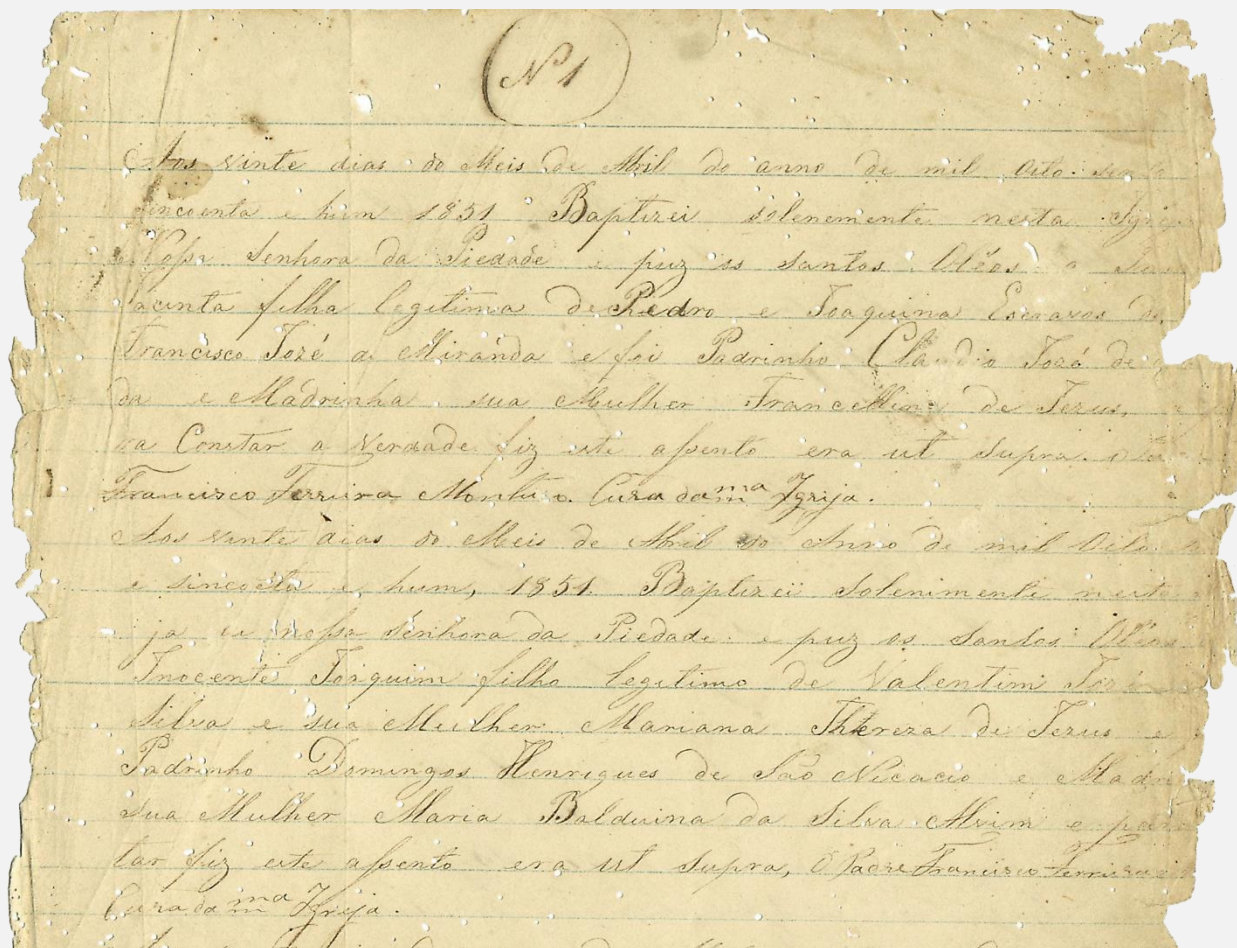 Nº 1
Aos vinte dias do Meis de Abril do anno de mil Oito
sincoenta e hum 1851 Baptizei solenemente nesta Igre
Nossa Senhora da Piedade e puz os Santos Oléos a
Jacinta filha legitima de Pedro e Joaquina Escravos de
Francisco Jozé de Miranda e foi Padrinho Claudio Jozé de
da e Madrinha sua Mulher Francellina de Jezus,
ra Constar a Verdade fiz este assento era ut supra. O
Francisco Ferreira Monteiro. Cura da mma Igreja.
Aos vinte dias do Meis de Abril do Anno de mil Oito
e sincoeta e hum, 1851 Baptizei Solenimente nesta
ja de nossa Senhora da Piedade e puz os Santos Oléos
Inocente Joaquim filho legitimo de Valentim Jozé
Silva e sua Mulher Mariana Thereza de Jezus e
Padrinho Domingos Henriques de São Nicacio e Madri
sua Mulher Maria Balduina da Silva Alvim e para
tar fiz este assento era ut supra, O Padre Francisco Ferreira
Cura da mma Igreja.